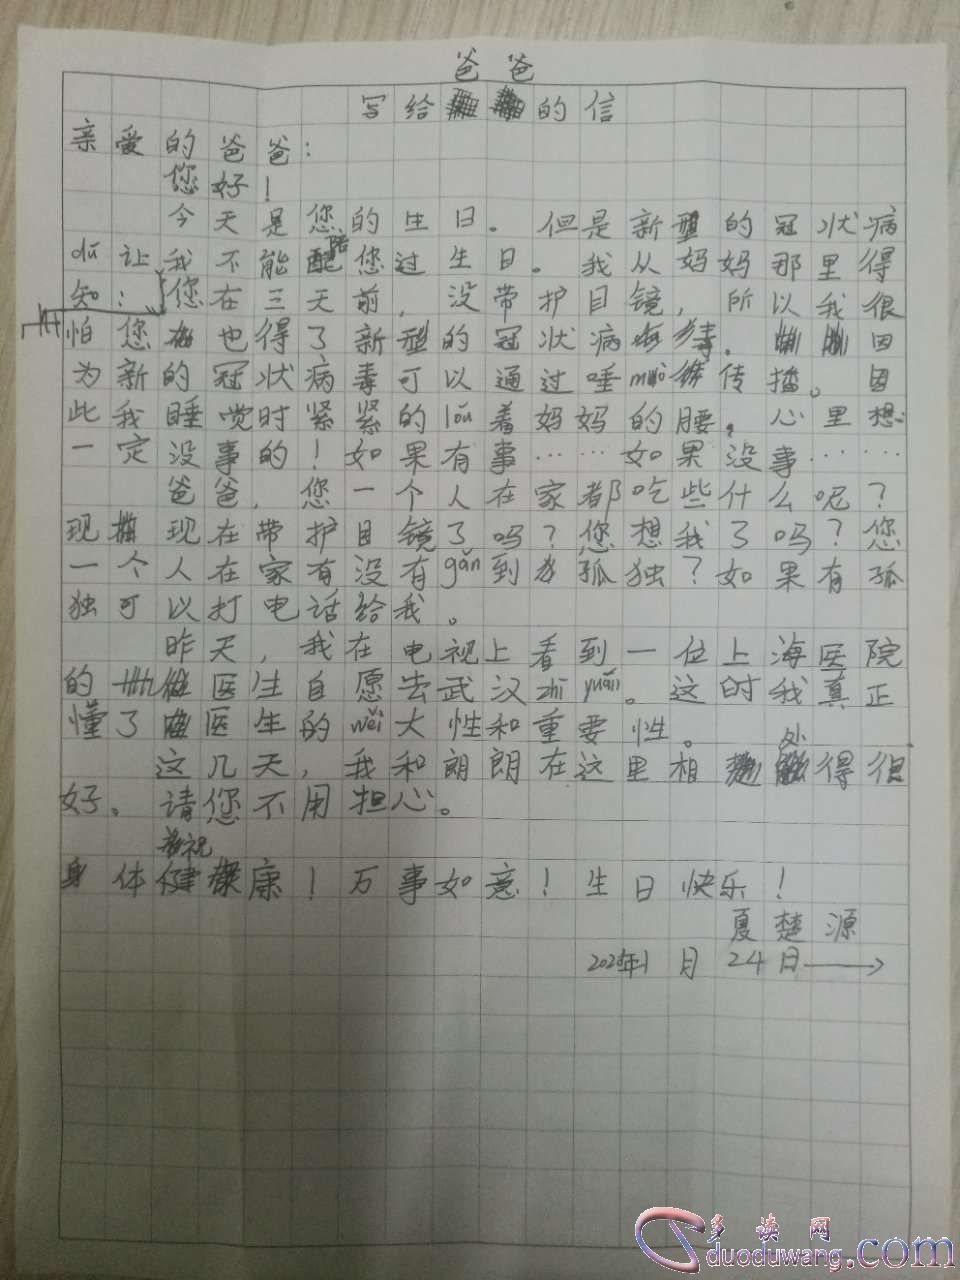 爸爸
写给的信
亲爱的爸爸:
您好!
今天是您的生日。但是新型的冠状病
dú让我不能陪您过生日。我从妈妈那里得
知:您在三天前,没带护目镜,所以我很
怕您也得了新型的冠状病毒。因
为新的冠状病毒可以通过唾mò传播。因
此我睡觉时紧紧的lǒu着妈妈的腰。心里想:
一定没事的!如果有事……如果没事……
爸爸,您一个人在家都吃些什么呢?
现现在带护目镜了吗?您想我了吗?您
一个人在家有没有gǎn到孤独?如果有孤
独可以打电话给我。
昨天,我在电视上看到一位上海医院
的医生自愿去武汉zhī yuán。这时我真正
懂了医生的wěi大性和重要性。
这几天,我和朗朗在这里相处得很
好。请您不用担心。
祝
身体健康!万事如意!生日快乐!
夏楚源
年1月24日
多读网
duoduwang.com